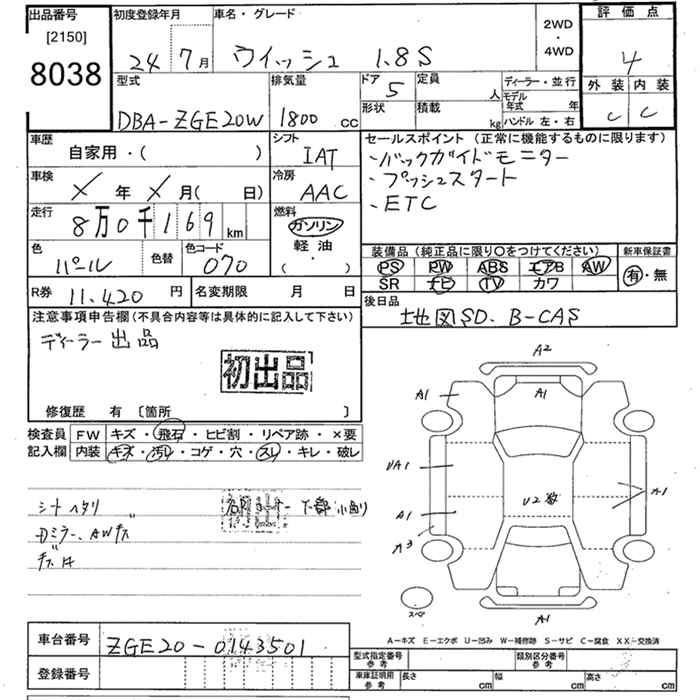 出品番号
[2150]
8038
初度登録年月
24 7月
車名・グレード
ウィッシュ 1.8S
2WD
・
4WD
評価点
4
外装 内装
C C
型式
DBA-ZGE20W
排気量
1800 cc
ドア
5
定員
人
形状
積載
kg
ディーラー・並行
モデル年式 年
ハンドル 左・右
車歴
自家用・( )
シフト
IAT
車検
X年 X月( 日)
冷房
AAC
走行
8万0千169km
燃料
ガソリン
軽油
( ・ )
色
パール
色替
色コード
070
R券 11,420 円
名変期限 月 日
セールスポイント (正常に機能するものに限ります)
・バックガイドモニター
・プッシュスタート
・ETC
装備品(純正品に限り〇をつけてください)
新車保証書
PS PW ABS エアB AW
有・無
SR ナビ TV カワ
後日品
地図SD、B-CAS
注意事項申告欄(不具合内容等は具体的に記入して下さい)
ディーラー出品
初出品
修復歴 有 〔箇所 〕
検査員
記入欄
FW キズ・飛石・ヒビ割・リペア跡・×要
内装 キズ・汚レ・コゲ・穴・スレ・キレ・破レ
シートヘタリ
Dミラー、AWキズ
下部小凹り
A2
A1
A1
UA1
U2数
A1
A1
A3
A1
スペア
A-キズ E-エクボ U-凹み W-補修跡 S-サビ C-腐食 XX-交換済
車台番号
ZGE20-0143501
登録番号
型式指定番号
参考
類別区分番号
参考
車庫証明用
参考
長さ cm
幅 cm
高さ cm